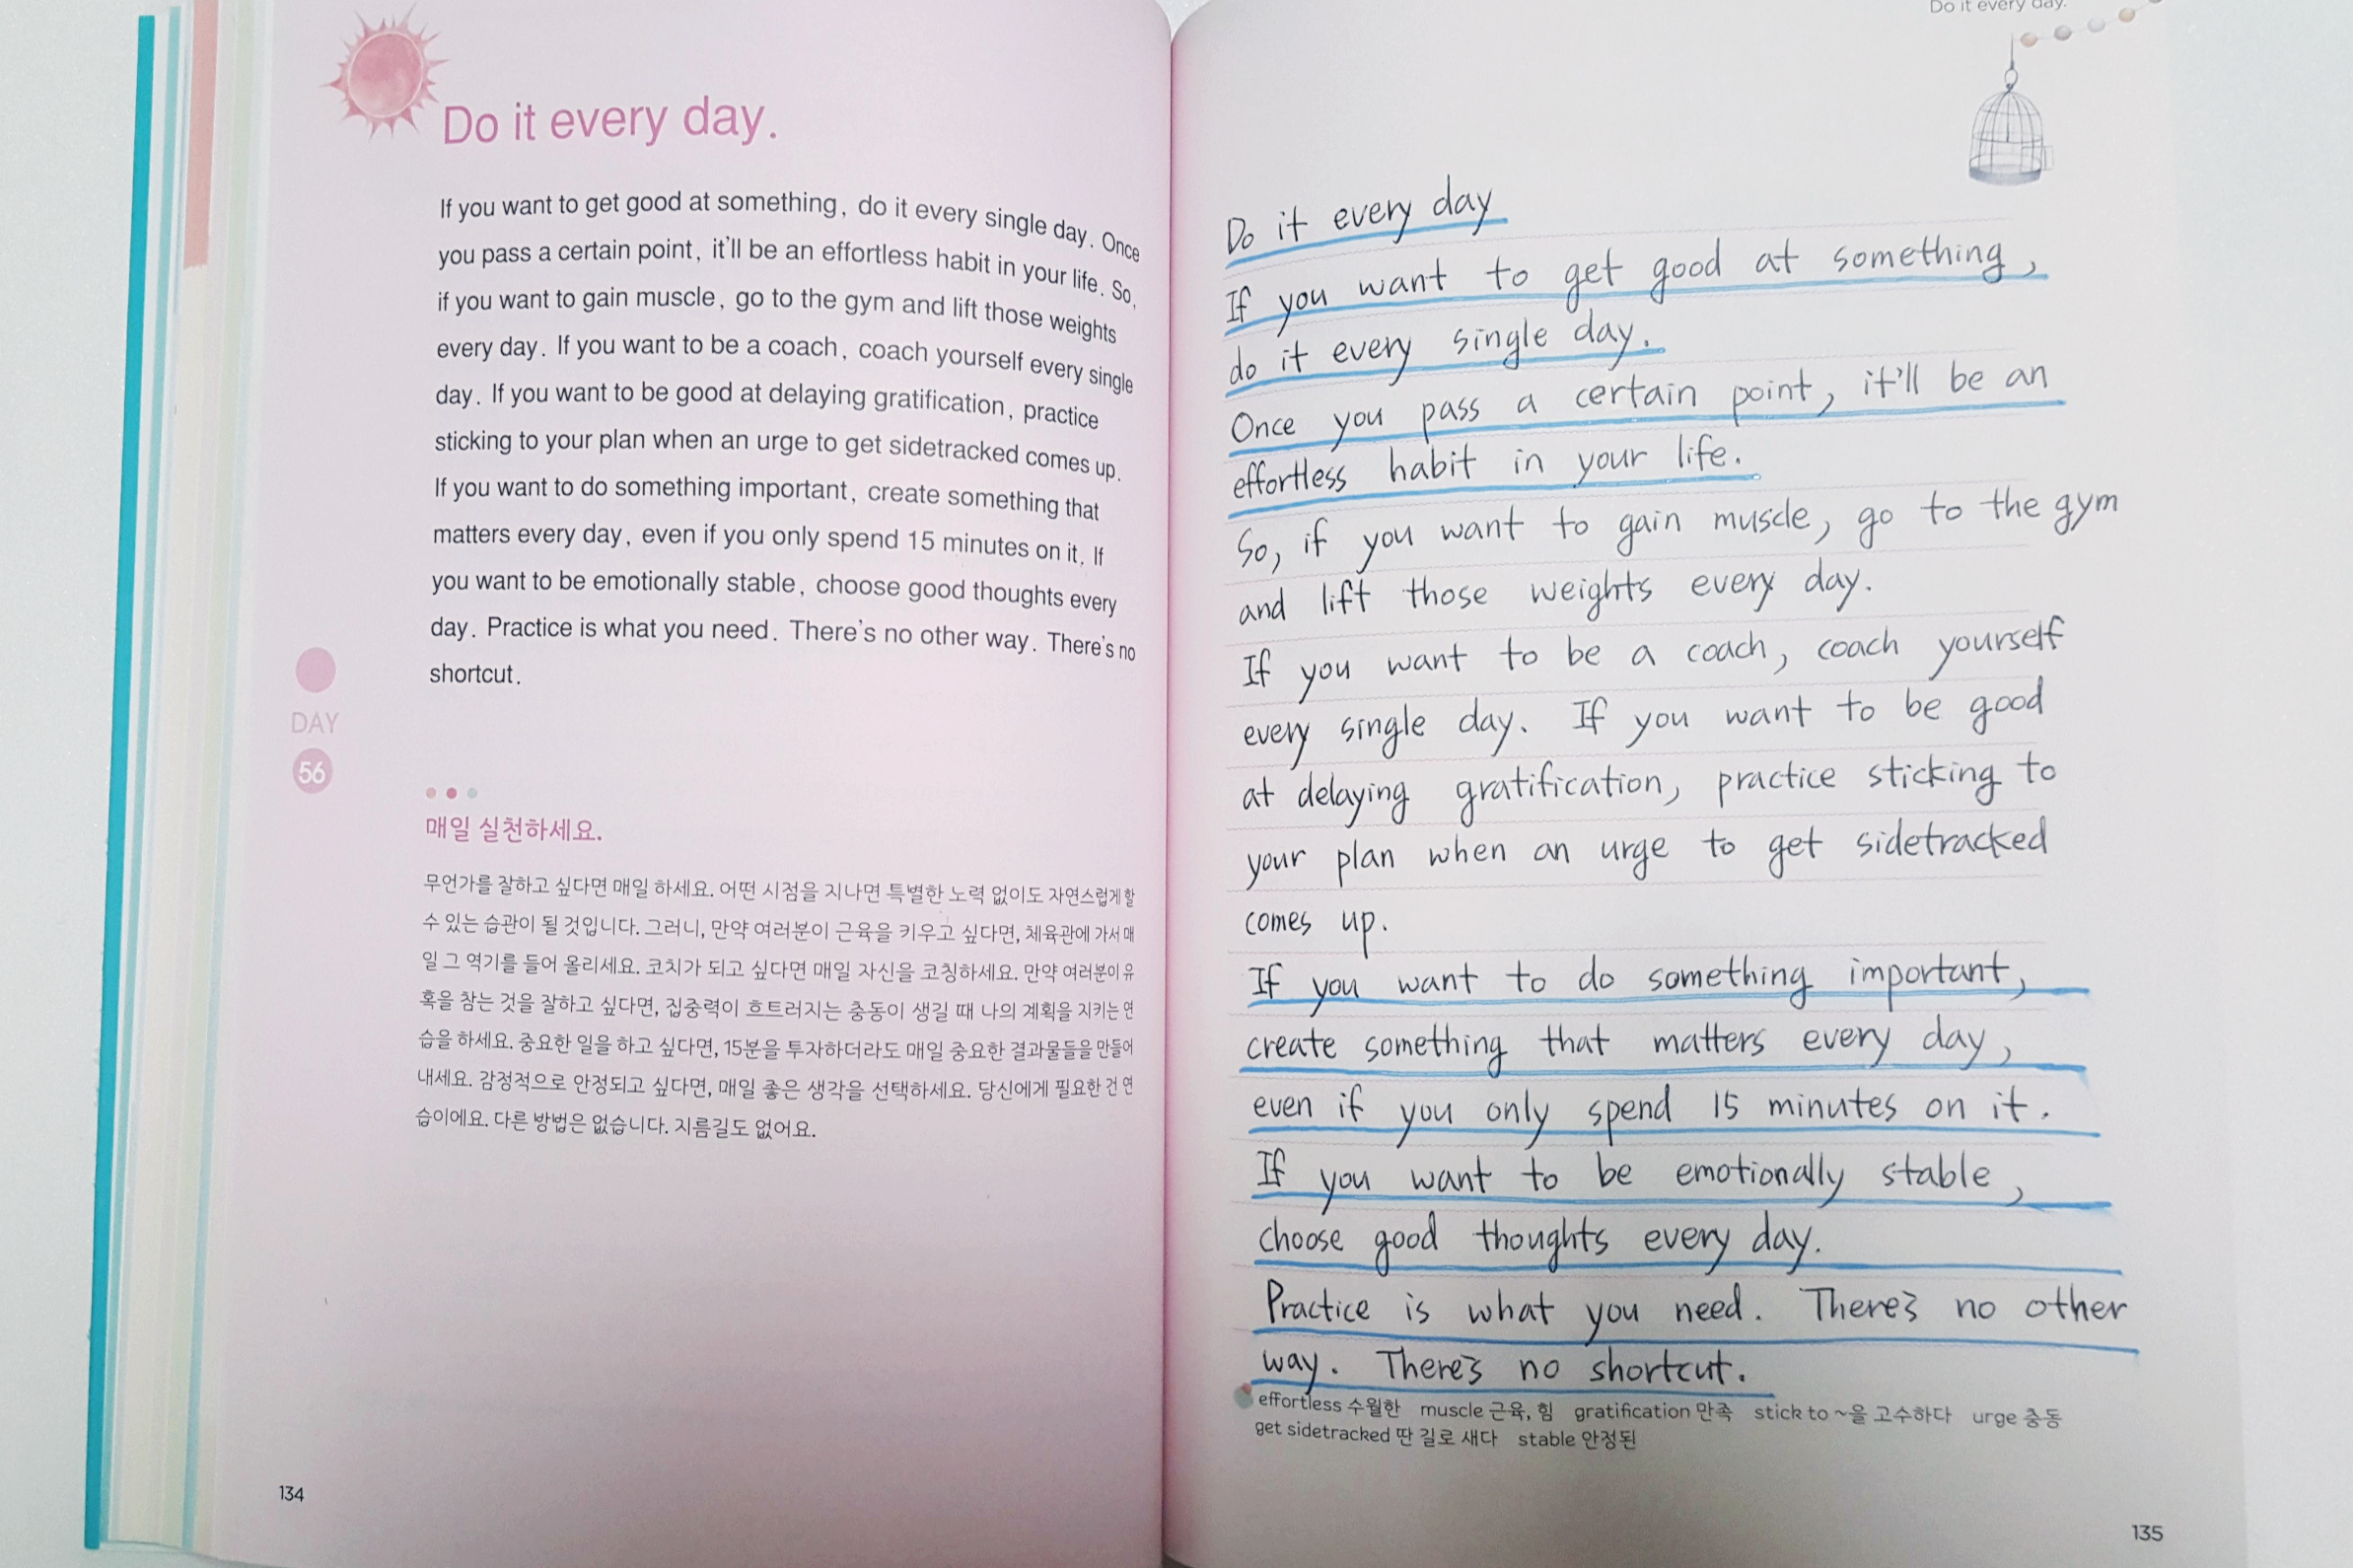 Do it every day.
If you want to get good at something, do it every single day. Once
you pass a certain point, it'll be an effortless habit in your life. So,
if you want to gain muscle, go to the gym and lift those weights
every day. If you want to be a coach, coach yourself every single
day. If you want to be good at delaying gratification, practice
sticking to your plan when an urge to get sidetracked comes up.
If you want to do something important, create something that
matters every day, even if you only spend 15 minutes on it. If
you want to be emotionally stable, choose good thoughts every
day. Practice is what you need. There's no other way. There's no
shortcut.
DAY
56
매일 실천하세요.
무언가를 잘하고 싶다면 매일 하세요. 어떤 시점을 지나면 특별한 노력 없이도 자연스럽게 할
수 있는 습관이 될 것입니다. 그러니, 만약 여러분이 근육을 키우고 싶다면, 체육관에 가서 매
일 그 역기를 들어 올리세요. 코치가 되고 싶다면 매일 자신을 코칭하세요. 만약 여러분이 유
혹을 참는 것을 잘하고 싶다면, 집중력이 흐트러지는 충동이 생길 때 나의 계획을 지키는 연
습을 하세요. 중요한 일을 하고 싶다면, 15분을 투자하더라도 매일 중요한 결과물들을 만들어
내세요. 감정적으로 안정되고 싶다면, 매일 좋은 생각을 선택하세요. 당신에게 필요한 건 연
습이에요. 다른 방법은 없습니다. 지름길도 없어요.
134
Do it every day.
Do it every day
If you want to get good at something,
do it every single day.
Once you pass a certain point, it'll be an
effortless habit in your life.
So, if you want to gain muscle, go to the gym
and lift those weights every day.
If you want to be a coach, coach yourself
every single day. If you want to be good
at delaying gratification, practice sticking to
your plan when an urge to get sidetracked
comes up.
If you want to do something important,
create something that matters every day,
even if you only spend 15 minutes on it.
If you want to be emotionally stable,
choose good thoughts every day.
Practice is what you need. There's no other
way. There's no shortcut.
effortless 수월한 muscle 근육, 힘 gratification 만족 stick to ~을 고수하다 urge 충동
get sidetracked 딴 길로 새다 stable 안정된
135